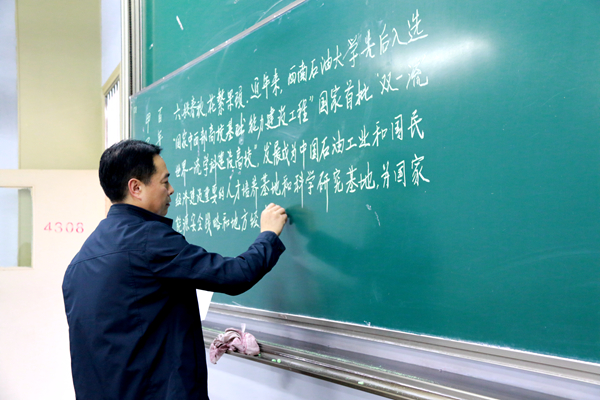 六秩奋效，花繁果硕。近年来，西南石油大学先后入选
"国家中西部高校基础能力建设工程""国家首批"双一流"
世界一流学科建设高校"，发展成为中国石油工业和国民
经济建设重要的人才培养基地和科学研究基地，为国家
能源安全战略和地方经
4308